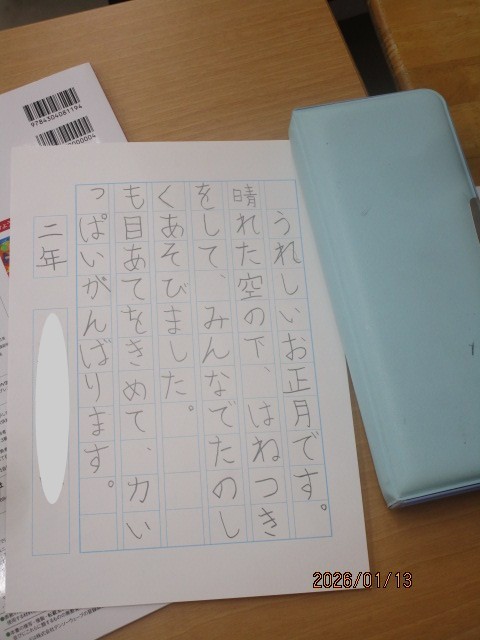 うれしいお正月です。
晴れた空の下、はねつき
をして、みんなでたのし
くあそびました。
も目あてをきめて、力い
っぱいがんばります。
二年
9784304081194
2026/01/13